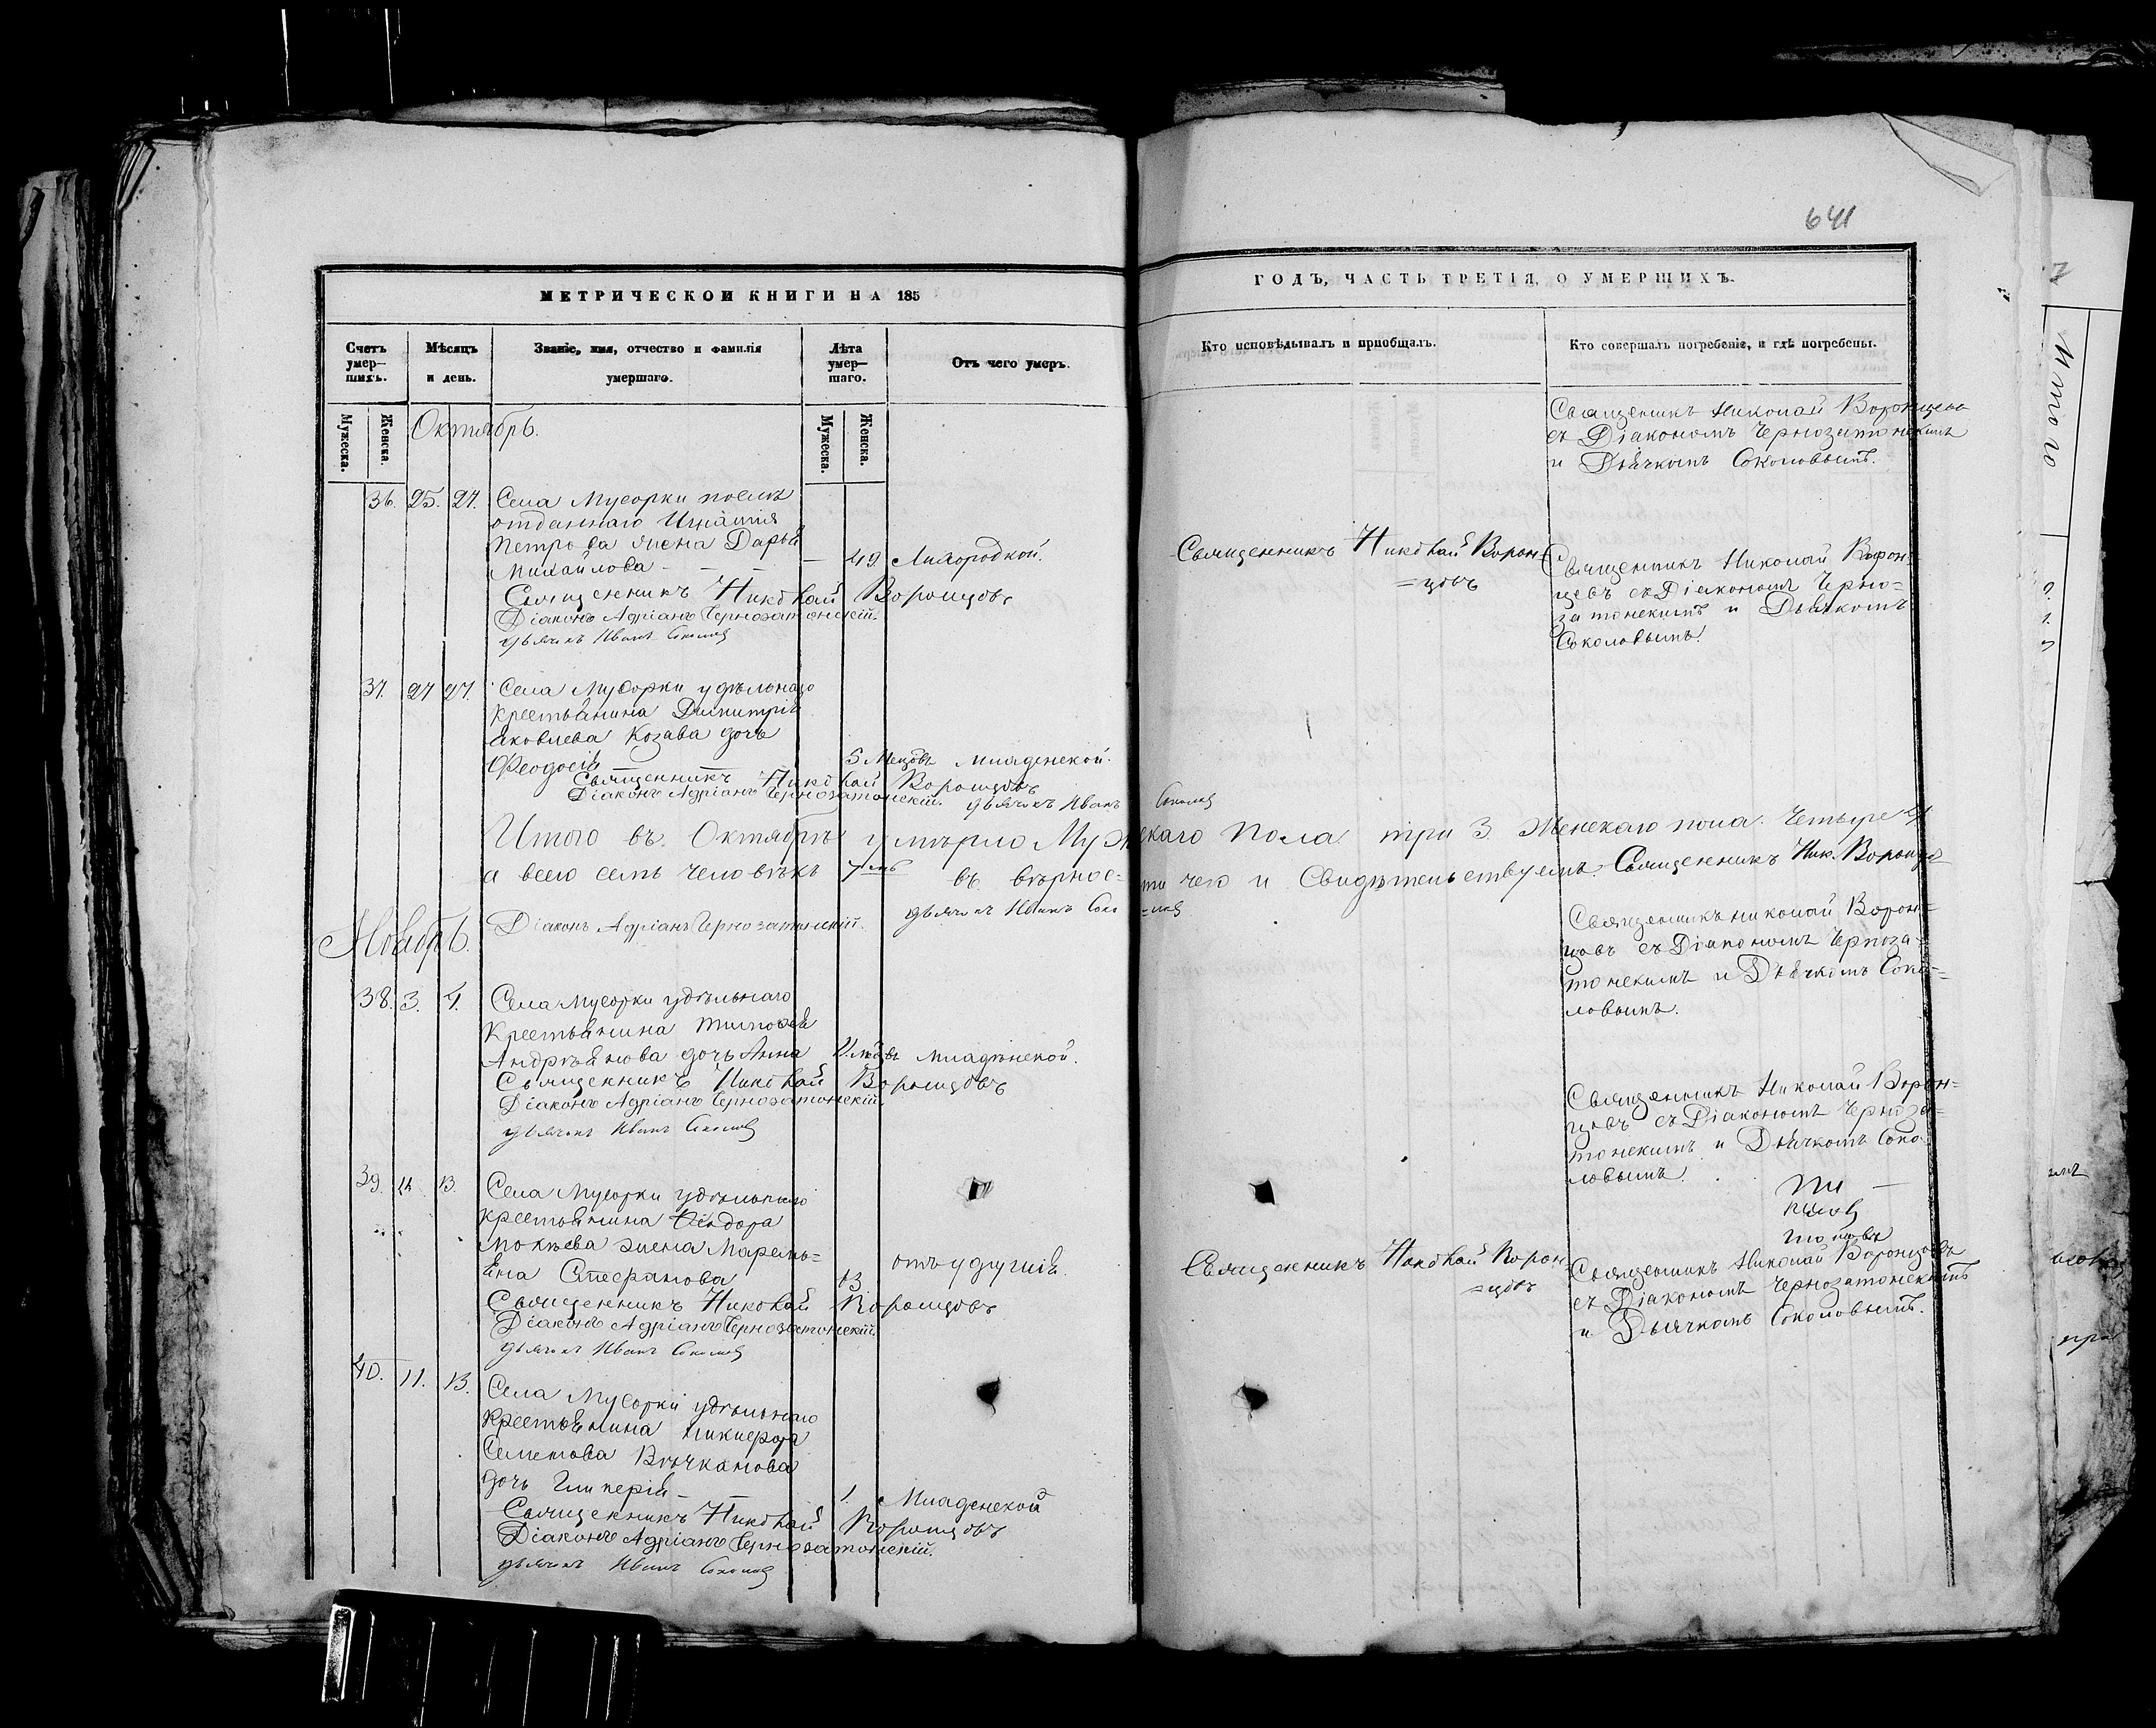 641
МЕТРИЧЕСКОЙ КНИГИ НА 185
ГОДЪ, ЧАСТЬ ТРЕТІЯ, О УМЕРШИХЪ.
Счетъ умер-
шихъ.
Мѣсяцъ
и день.
Званіе, имя, отчество и фамилія
умершаго.
Лѣта
умер-
шаго.
Отъ чего умеръ.
Кто исповѣдывалъ и пріобщалъ.
Кто совершалъ погребеніе, и гдѣ погребены.
Мужеска.
Женска.
Мужеска.
Женска.
Октябрь.
Священникъ Николай Воронцовъ
съ Діакономъ Чернозатонскимъ
и Дьячкомъ Соколовымъ.
36. 25. 27. Села Мусорки послѣ
отданнаго Игнатія
Петрова жена Дарья
Михайлова - - - 49. Лихорадкой.
Священникъ Николай Воронцовъ
Діаконъ Адріанъ Чернозатонскій.
дьячекъ Иванъ Соколовъ
Священникъ Николай Ворон=
=цовъ
Священникъ Николай Ворон=
цевъ съ Діакономъ Черно=
затонскимъ и Дьячкомъ
Соколовымъ.
37. 27 27. Села Мусорки удѣльнаго
крестьянина Димитрія
Яковлева Козава дочь
Феодосія 5 Мецовъ Младенской.
Священникъ Николай Воронцовъ
Діаконъ Адріанъ Чернозатонскій. дьячекъ Иванъ Соколовъ
Итого въ Октябрѣ умѣрло Мужскаго Пола три 3 Женскаго пола Четыре 4
а всего семь человѣкъ 7мь въ вѣрнос=ти чего и Свидѣтельствуемъ Священникъ Ник. Воронцовъ
Діаконъ Адріанъ Чернозатонскій. дьячекъ Иванъ Соко=ловъ
Ноябрь.
Священникъ Николай Ворон=
цовъ съ Діакономъ Черноза=
тонскимъ и Дьячкомъ Соко=
ловымъ.
38. 3. 4. Села Мусорки удѣльнаго
Крестьянина Тимофея
Андреянова дочь Анна младѣнской.
Священникъ Николай Воронцовъ
Діаконъ Адріанъ Чернозатонскій.
дьячекъ Иванъ Соколовъ
Священникъ Николай Ворон=
цовъ съ Діакономъ Черноза=
тонскимъ и Дьячкомъ Соко
ловымъ.
39. 11. 13. Села Мусорки удѣльнаго
крестьянина Феодора
Мокѣева жена Маремь=
яна Стефанова отъ удушія.
Священникъ Николай Воронцовъ
Діаконъ Адріанъ Чернозатонскій.
дьячекъ Иванъ Соколовъ
Священникъ Николай Ворон
=цовъ
Священникъ Николай Воронцовъ
съ Діакономъ Чернозатонскимъ
и Дьячкомъ Соколовымъ.
40. 11. 13. Села Мусорки удѣльнаго
Крестьянина Никифора
Семенова Вычканова
дочь Гликерія - 1. Младенской
Священникъ Николай Воронцовъ
Діаконъ Адріанъ Чернозатонскій.
дьячекъ Иванъ Соколовъ
Итого